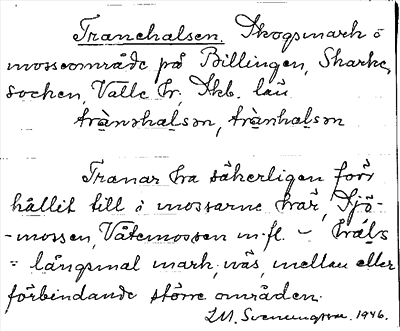 Tranehalsen. Skogsmark o
mosseområde på Billingen, Skarke
socken, Valle hr. Skb. län
trànəhalsən, trànhalsən
Tranar ha säkerligen förr
hållit till i mossarne här, Sjö-
-mossen, Våtemossen m. fl. – hals
= långsmal mark, näs, mellan eller
förbindande större områden.
LM. Svenungsson. 1946.